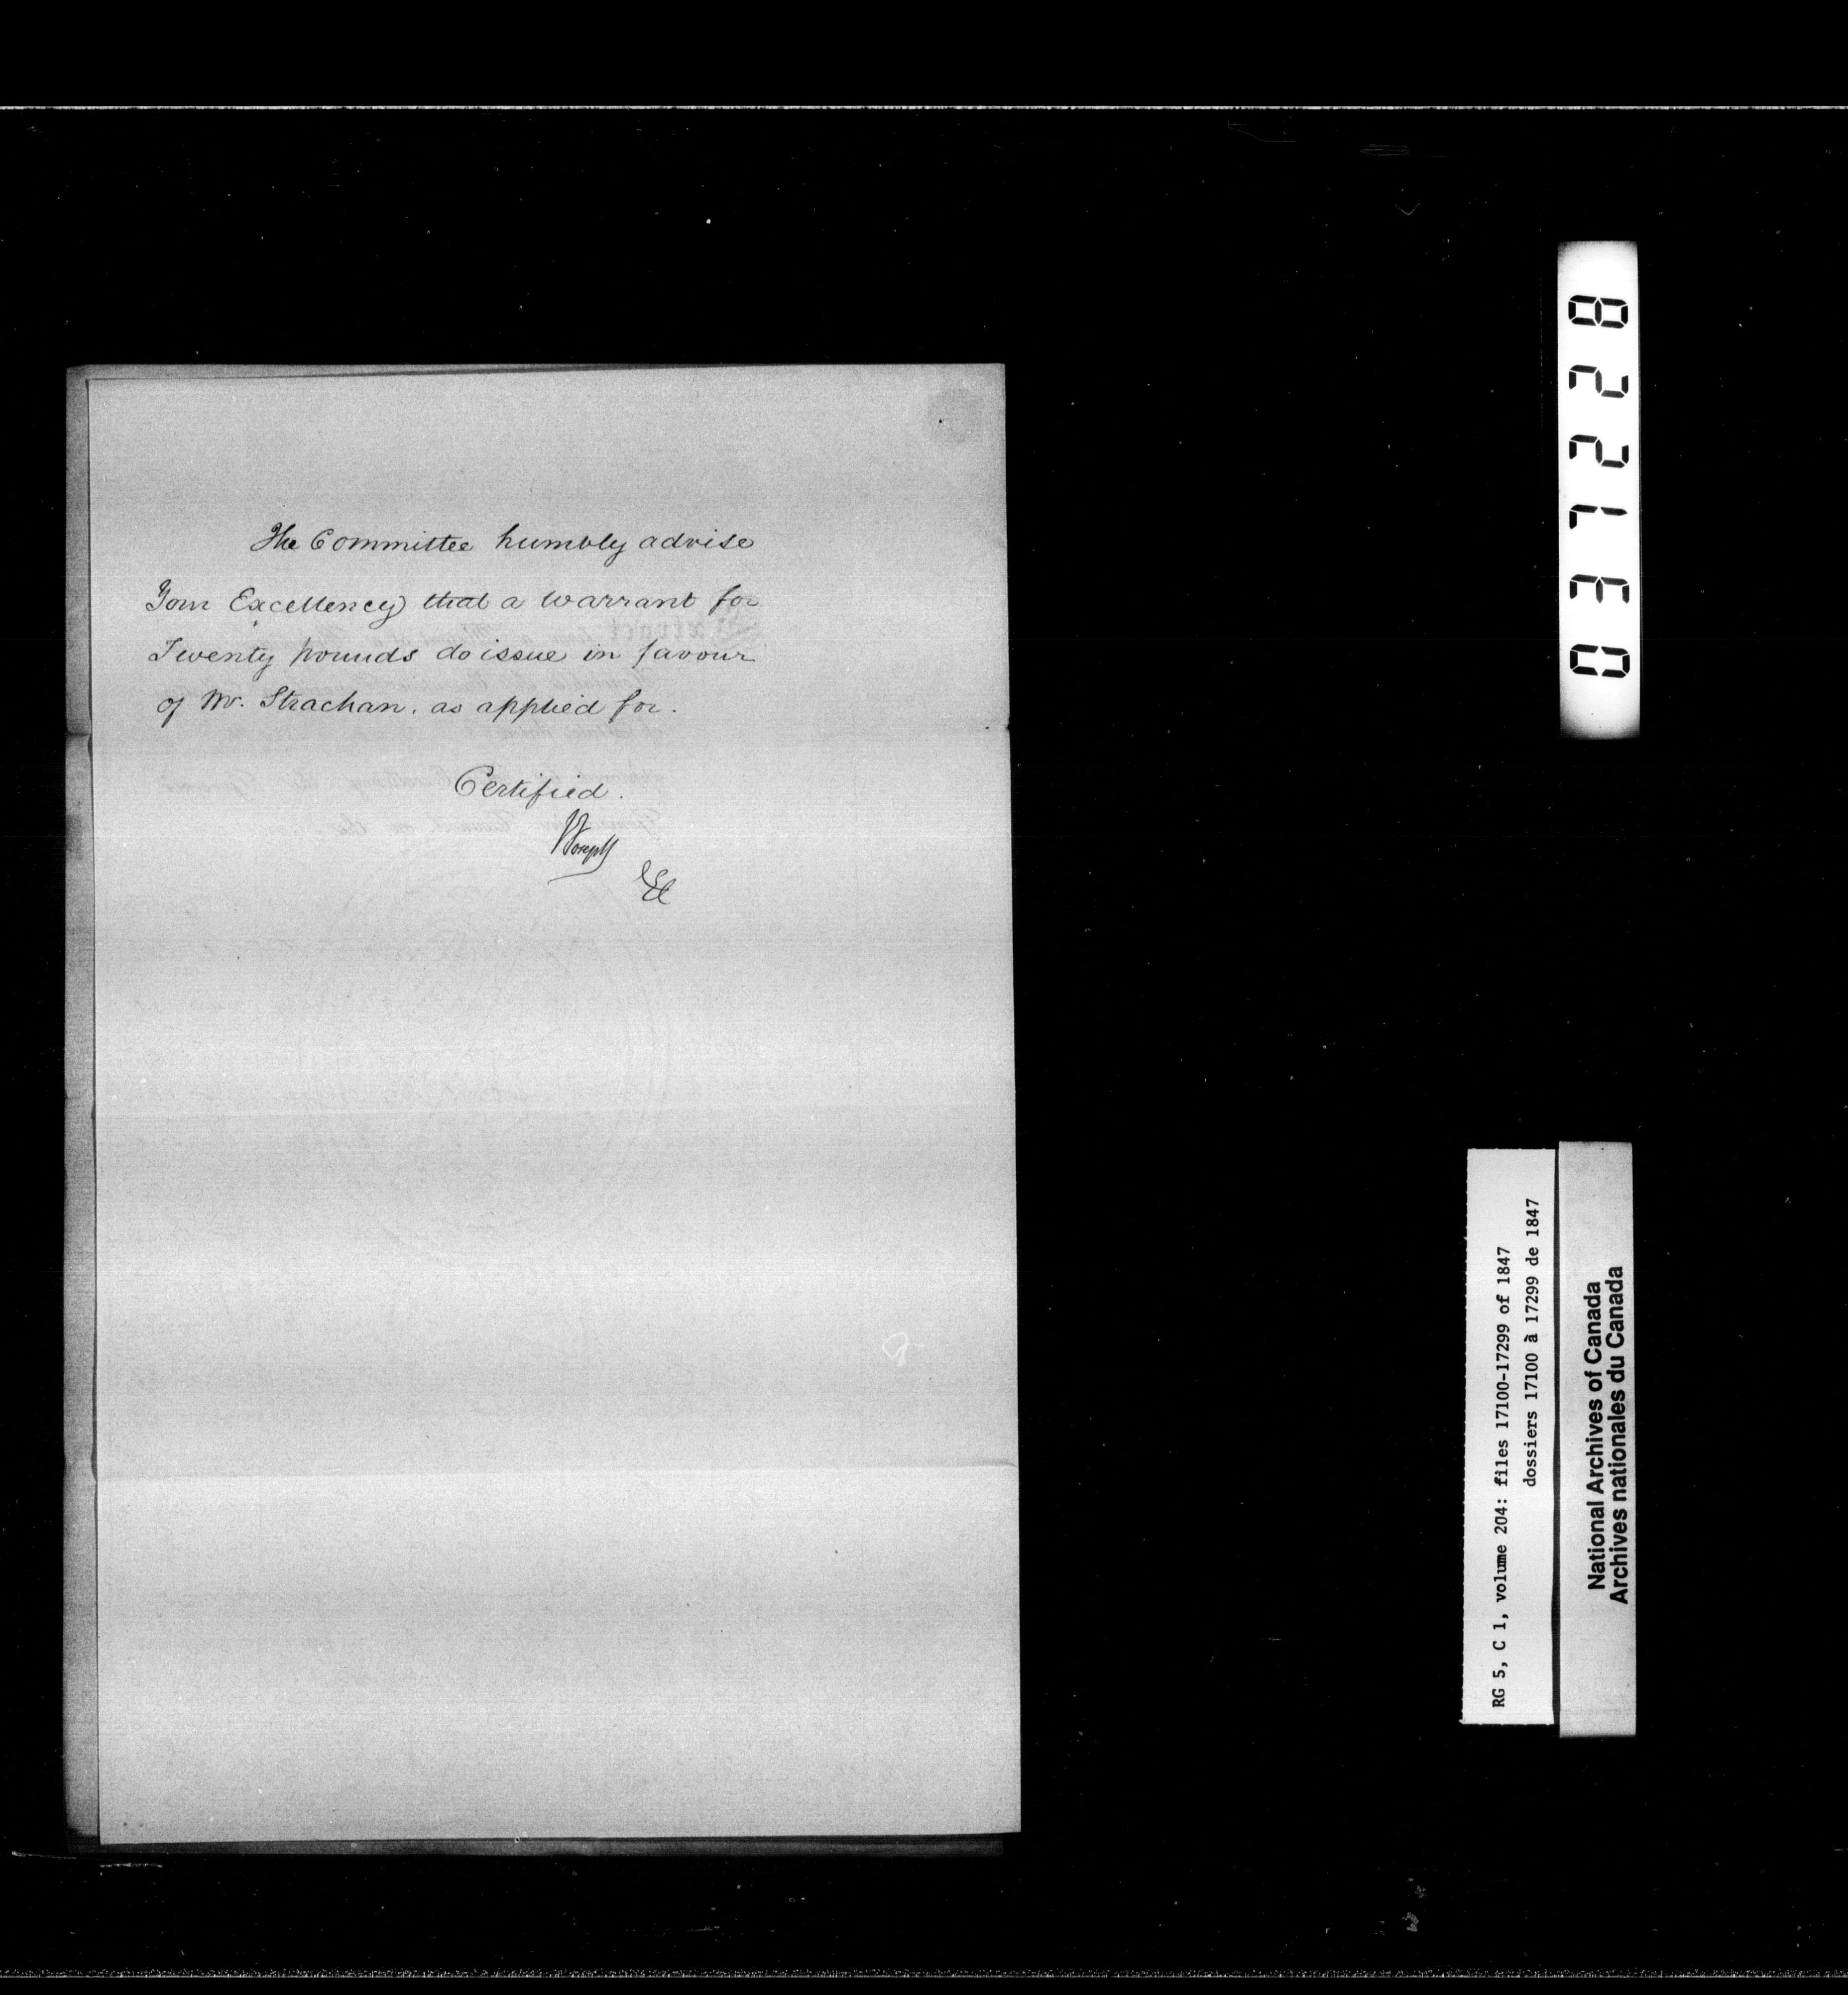 The Committee humbly advise
Your Excellency that a Warrant for
Twenty pounds do issue in favour
of Mr. Strachan, as applied for.
Certified.
Joseph
037228
RG 5, C 1, volume 204: files 17100-17299 of 1847
dossiers 17100 à 17299 de 1847
National Archives of Canada
Archives nationales du Canada